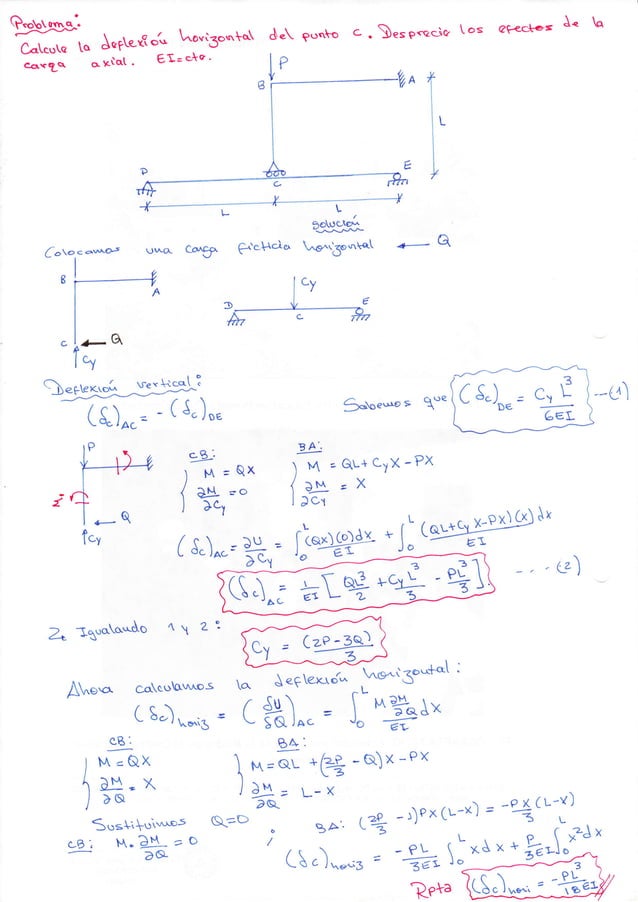 Problema:
Calcule la deflexión horizontal del punto C. Desprecie los efectos de la
carga axial. EI=cte.
P
B
A
L
D
C
E
L
L
solución
Colocamos una carga ficticia horizontal ← Q
B
A
C
Q
Cy
Cy
D
C
E
Deflexión vertical:
(δc)AC = -(δc)DE
Sabemos que (δc)DE = Cy L³/6EI --(1)
P
Q
Cy
CB:
M = QX
∂M/∂Cy = 0
BA:
M = QL + CyX - PX
∂M/∂Cy = X
(δc)AC = ∂U/∂Cy = ∫₀ᴸ (QX)(0)dx/EI + ∫₀ᴸ (QL+CyX-PX)(X)dx/EI
(δc)AC = 1/EI [QL³/2 + CyL³/3 - PL³/3] ---(2)
Igualando 1 y 2:
Cy = (2P-3Q)/3
Ahora calculamos la deflexión horizontal:
(δc)horiz = (δU/δQ)AC = ∫₀ᴸ M ∂M/∂Q dx/EI
CB:
M = QX
∂M/∂Q = X
BA:
M = QL + (2P/3 - Q)X - PX
∂M/∂Q = L-X
Sustituimos Q=0
CB: M.∂M/∂Q = 0 ;
BA: (2P/3 -1)PX(L-X) = -PX/3 (L-X)
(δc)horiz = -PL/3EI ∫₀ᴸ xdx + P/3EI ∫₀ᴸ x²dx
Rpta (δc)hori = -PL³/18EI